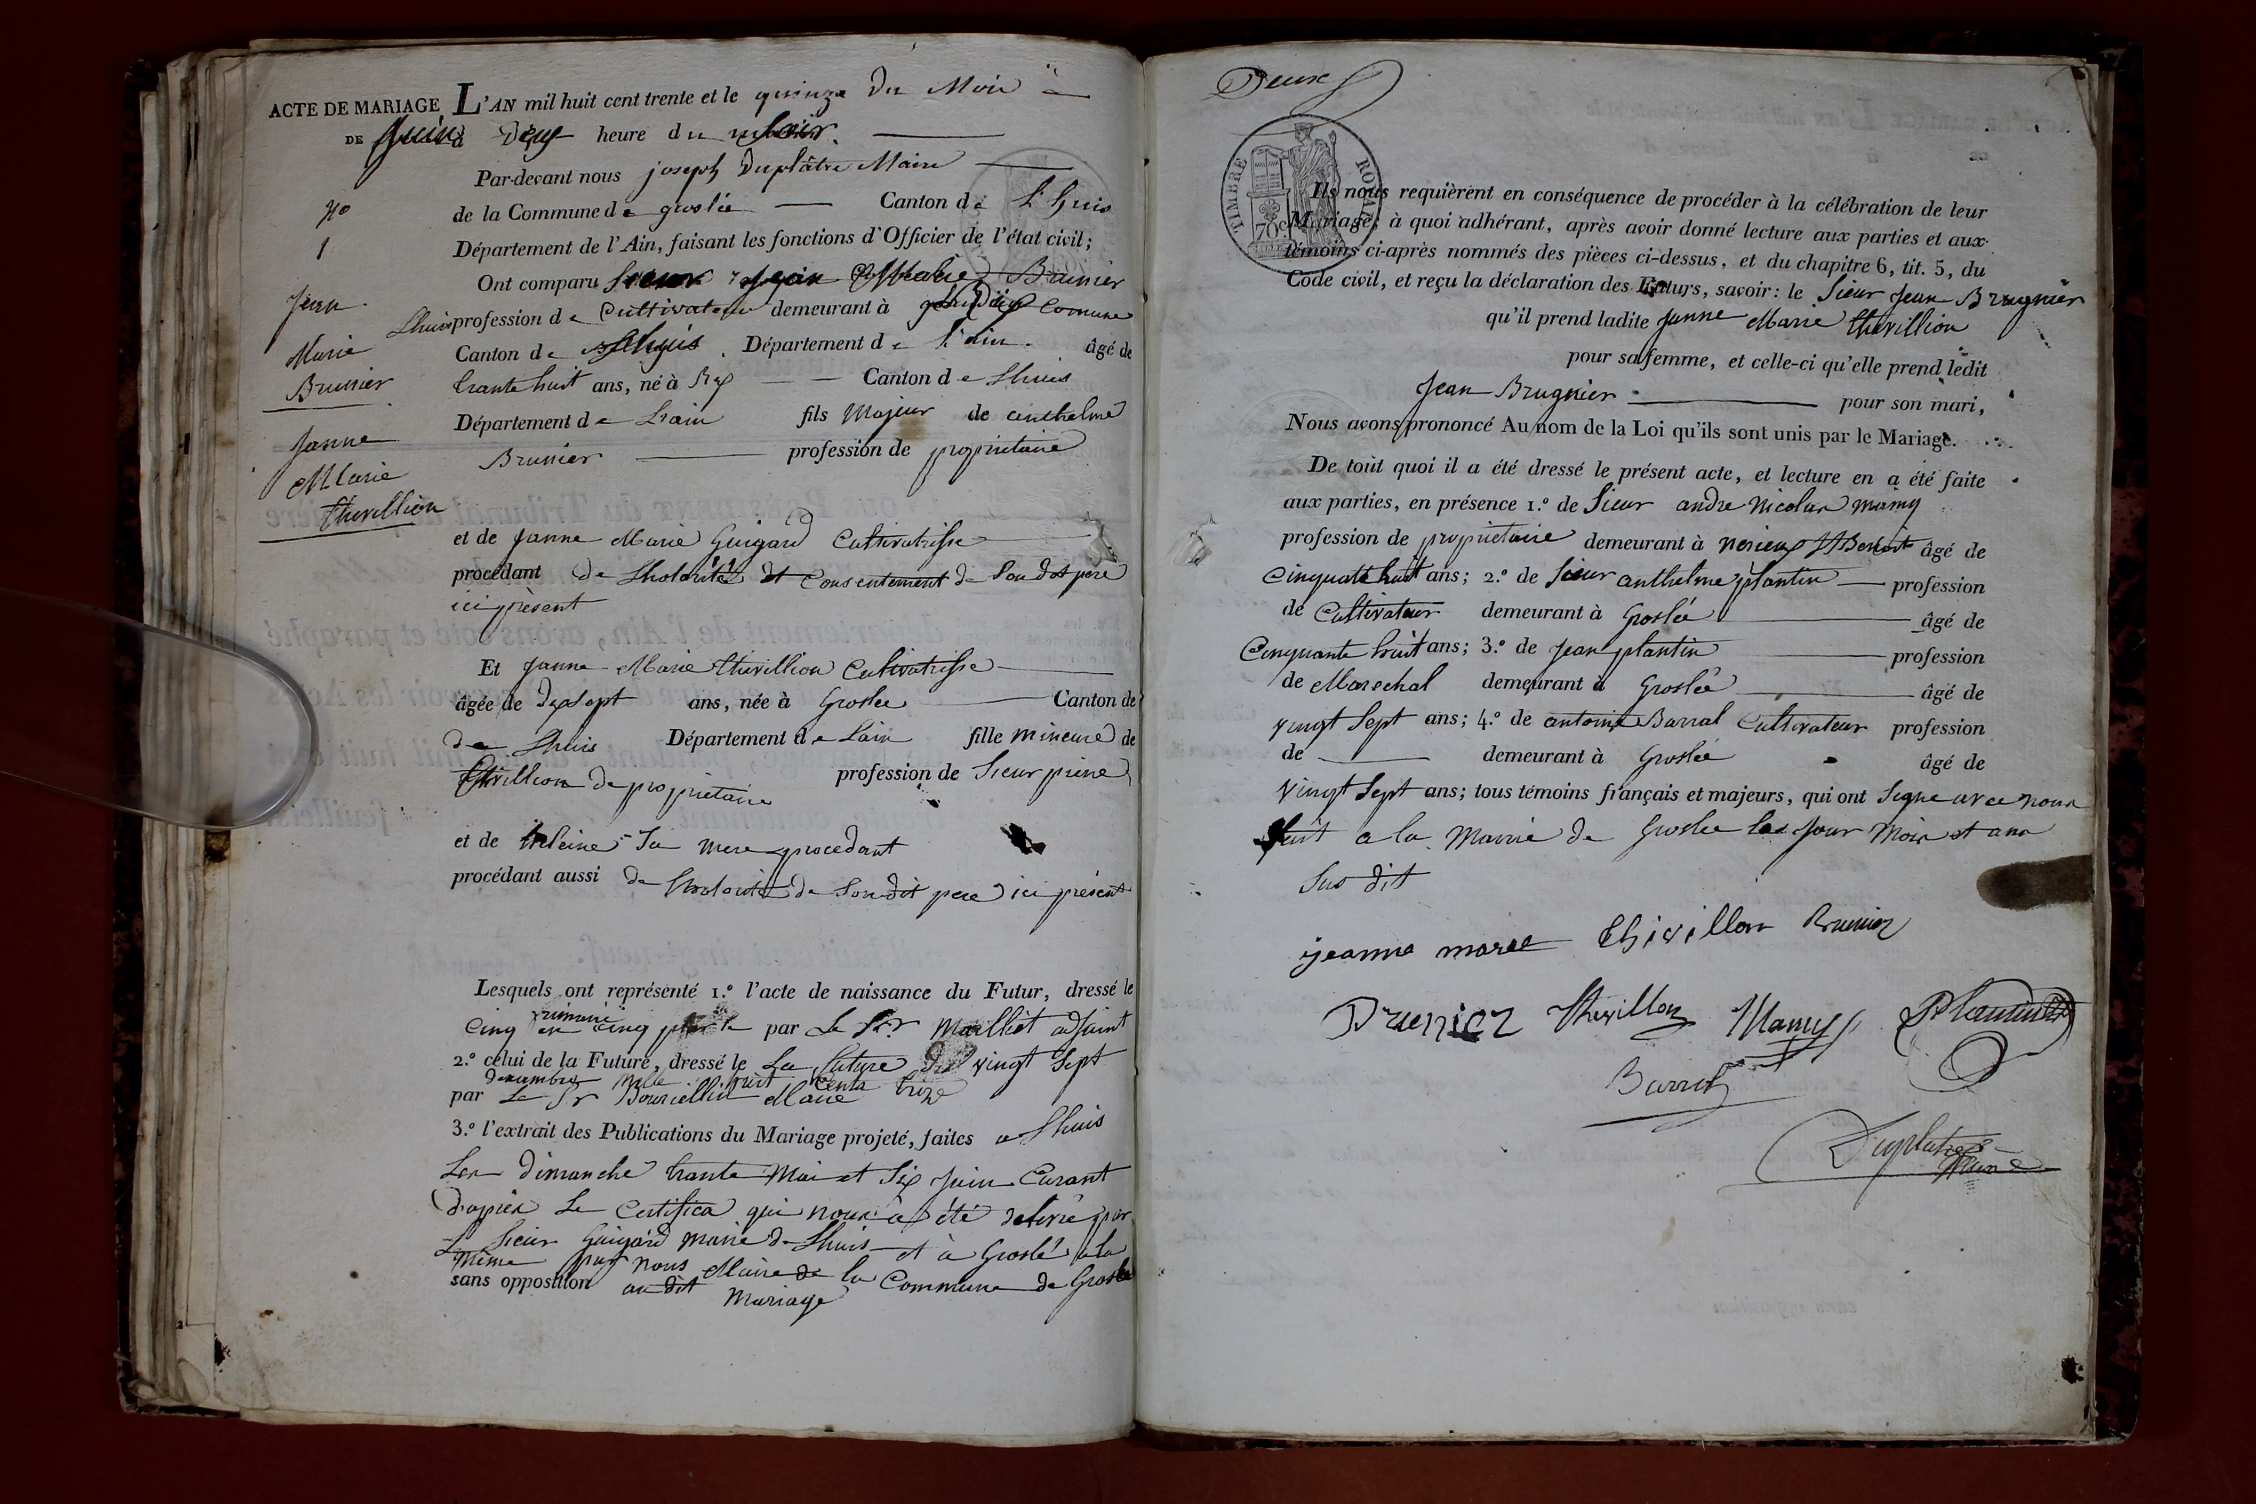 ACTE DE MARIAGE
DE Juin
No
1
Jean
Marie
Brunier
Janne
Marie
thevillion
L'AN mil huit cent trente et le quinze Du Mois
à heure du soir.
Par-devant nous joseph Duplâtre Maire
de la Commune de groslée Canton de L'huis
Département de l'Ain, faisant les fonctions d'Officier de l'état civil;
Ont comparu Sieur Jean Brunier
Lhuis profession de Cultivateur demeurant à Comune
Canton de Lhuis. Département de l'ain. âgé de
trante huit ans, né à Canton de Lhuis
Département de Lain fils Majeur de anthelme
Brunier profession de propriétaire
et de Janne Marie Guigard Cultivatrisse
procédant de Lhotorité et Consentement de Son dit pere
ici présent
Et Janne Marie thevillion Cultivatrisse
âgée de dixsept ans, née à Groslee Canton de
de Lhuis Département de Lain fille mineure de
thevillion de propriétaire profession de Sieur
et de Sa mere procedant
procédant aussi de Lhotorité de Son dit pere ici présent
Lesquels ont représenté 1.º l'acte de naissance du Futur, dressé le
Cinq par Le Sr. Mailliet adjoint
2.º celui de la Future, dressé le La future vingt Sept
decembre mille huit Cents trize
par Le Sr Maire
3.º l'extrait des Publications du Mariage projeté, faites a Lhuis
Les dimanche trante Mai et Six Juin Curant
d'apres Le Certifica qui nous a été delivré par
Le Sieur Guigard maire de Lhuis et à Groslé a la
même par nous Maire de la Commune de Groslee
sans opposition au dit Mariage
Deux
TIMBRE ROYAL
70c
Ils nous requièrent en conséquence de procéder à la célébration de leur
Mariage; à quoi adhérant, après avoir donné lecture aux parties et aux
témoins ci-après nommés des pièces ci-dessus, et du chapitre 6, tit. 5, du
Code civil, et reçu la déclaration des Futurs, savoir: le Sieur Jean Brugnier
qu'il prend ladite Janne Marie thevillion
pour sa femme, et celle-ci qu'elle prend ledit
Jean Brugnier pour son mari,
Nous avons prononcé Au nom de la Loi qu'ils sont unis par le Mariage.
De tout quoi il a été dressé le présent acte, et lecture en a été faite
aux parties, en présence 1.º de Sieur andre Nicolas mamy
profession de propriétaire demeurant à St Benoit âgé de
Cinquate huit ans; 2.º de Sieur anthelme plantin profession
de Cultivateur demeurant à Groslée âgé de
Cinquante huit ans; 3.º de Jean plantin profession
de Marechal demeurant à Groslée âgé de
vingt Sept ans; 4.º de antoine Barral Cultivateur profession
de demeurant à Groslée âgé de
vingt Sept ans; tous témoins français et majeurs, qui ont Signe avec nous
fait a la Mairie de Groslee les Jour Mois et ans
Sus dit
jeanne marie thivillon Brunier
Brunier thevillon Mamy
Barral
Duplatre
Maire